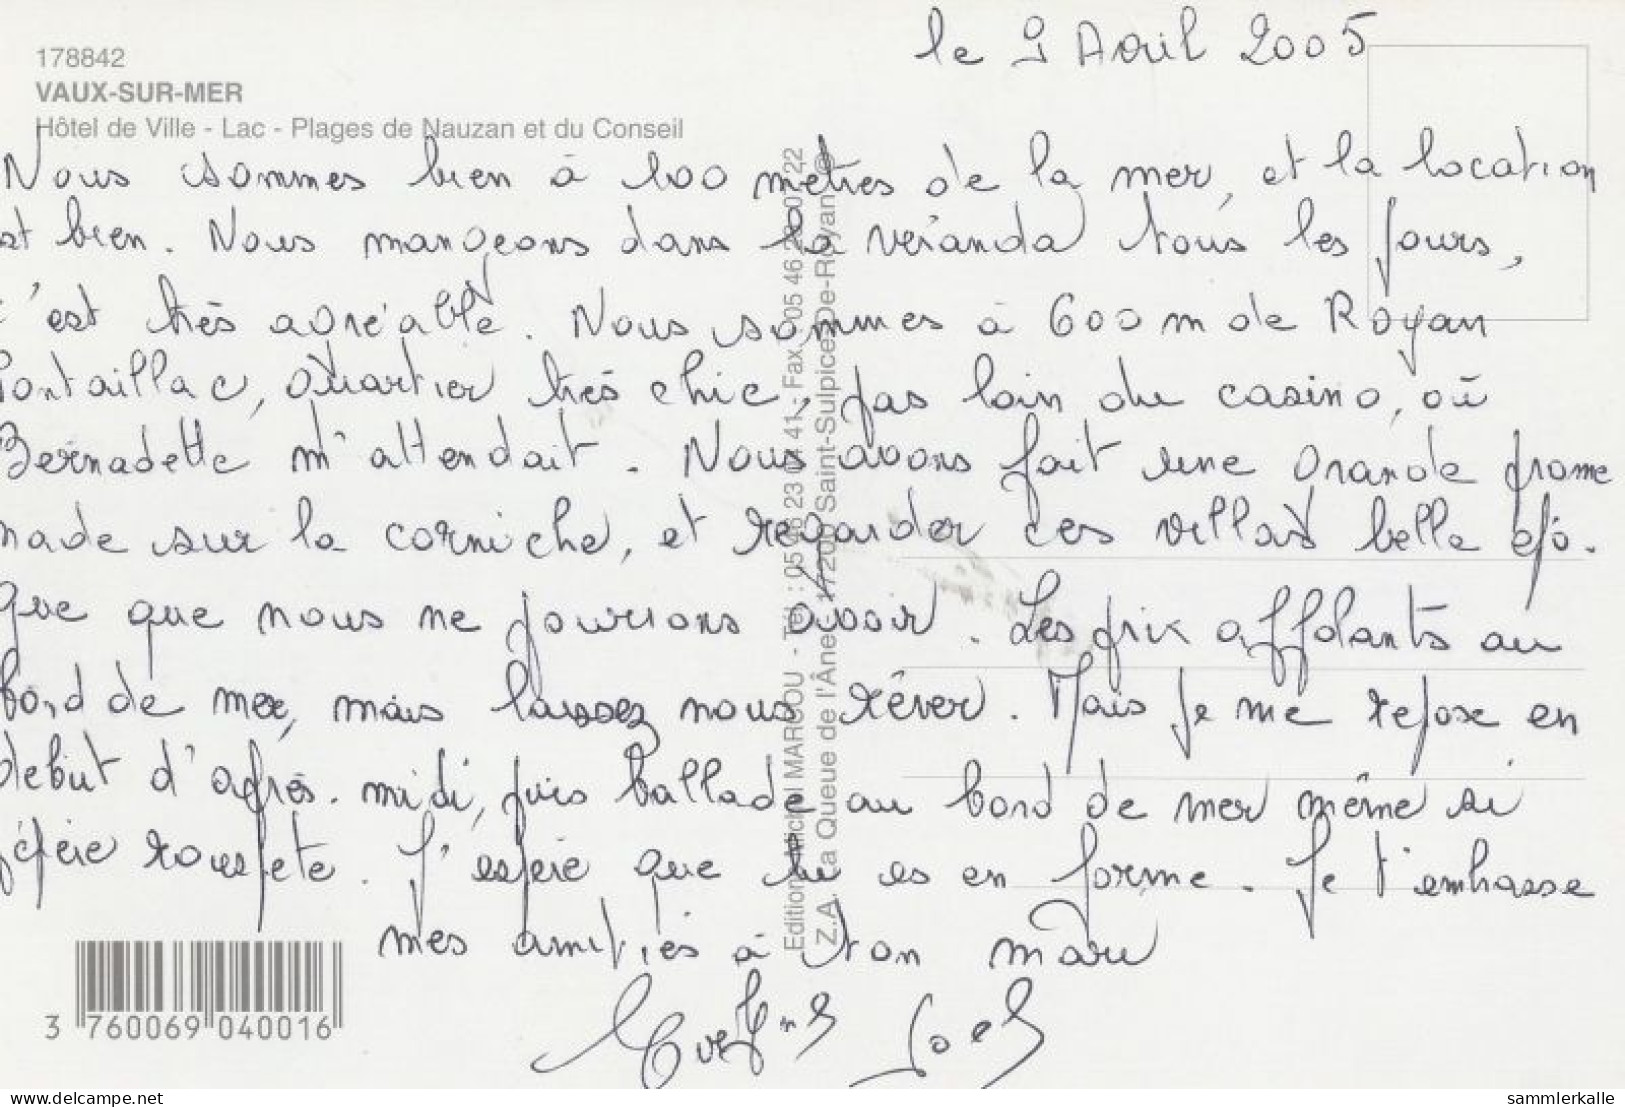 le 9 Avril 2005
178842
VAUX-SUR-MER
Hôtel de Ville - Lac - Plages de Nauzan et du Conseil
Nous sommes bien à 100 mètres de la mer, et la location
est bien. Nous mangeons dans la véranda tous les jours,
c'est très agréable. Nous sommes à 600 m de Royan
Pontaillac, quartier très chic, pas loin du casino, où
Bernadette m'attendait. Nous avons fait une grande prome
nade sur la corniche, et regarder ces villas belle épo-
que que nous ne pourrions avoir. Les prix affolants au
bord de mer, mais laissez nous rêver. Mais je me repose en
debut d'après-midi, puis ballade au bord de mer même si
rouspete. J'espère que tu es en forme. Je t'embrasse
mes amitiés à ton mari
Joel
Editions Michel MARCOU - Tél. : 05 46 23 41 - Fax : 05 46 22
Z.A. La Queue de l'Âne 17200 Saint-Sulpice-De-Royan ©
3 760069 040016
www.delcampe.net
sammlerkalle